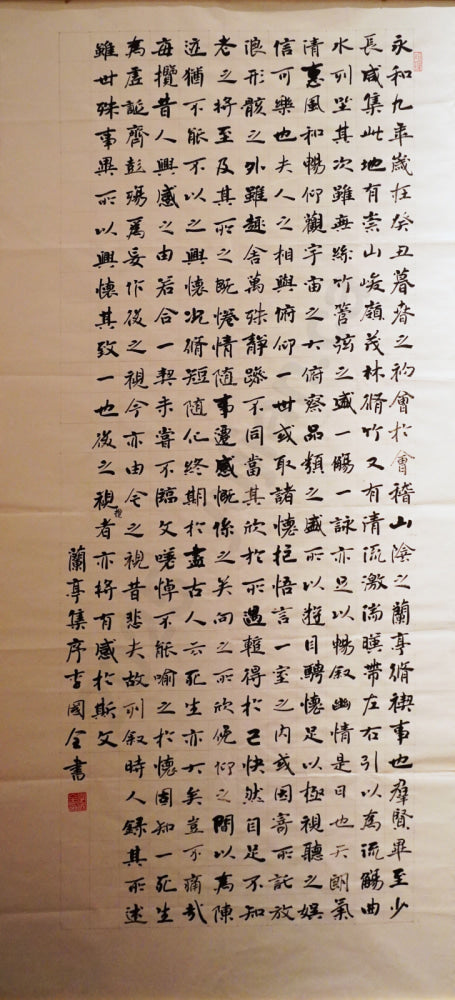 永和九年歲在癸丑暮春之初會於會稽山陰之蘭亭脩禊事也群賢畢至少
長咸集此地有崇山峻嶺茂林脩竹又有清流激湍暎帶左右引以為流觴曲
水列坐其次雖無絲竹管弦之盛一觴一詠亦足以暢叙幽情是日也天朗氣
清惠風和暢仰觀宇宙之大俯察品類之盛所以遊目騁懷足以極視聽之娛
信可樂也夫人之相與俯仰一世或取諸懷抱悟言一室之內或因寄所託放
浪形骸之外雖趣舍萬殊靜躁不同當其欣於所遇輒得於己快然自足不知
老之將至及其所之既惓情隨事遷感慨係之矣向之所欣俛仰之間以為陳
迹猶不能不以之興懷況脩短隨化終期於盡古人云死生亦大矣豈不痛哉
每攬昔人興感之由若合一契未嘗不臨文嗟悼不能喻之於懷固知一死生
為虛誕齊彭殤為妄作後之視今亦由今之視昔悲夫故列叙時人錄其所述
雖世殊事異所以興懷其致一也後之視者亦將有感於斯文
蘭亭集序李國全書